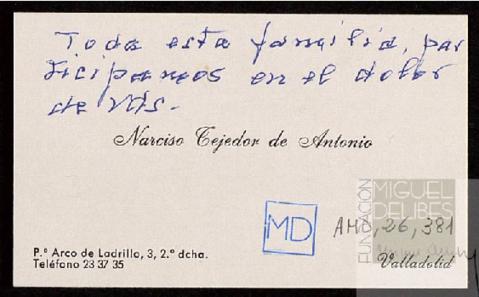 Toda esta familia, par
ticipamos en el dolor
de Vds.
Narciso Tejedor de Antonio
FUNDACIÓN
MIGUEL
DELIBES
MD
AMD, 26, 381
P.º Arco de Ladrillo, 3, 2.º dcha.
Teléfono 23 37 35
Valladolid